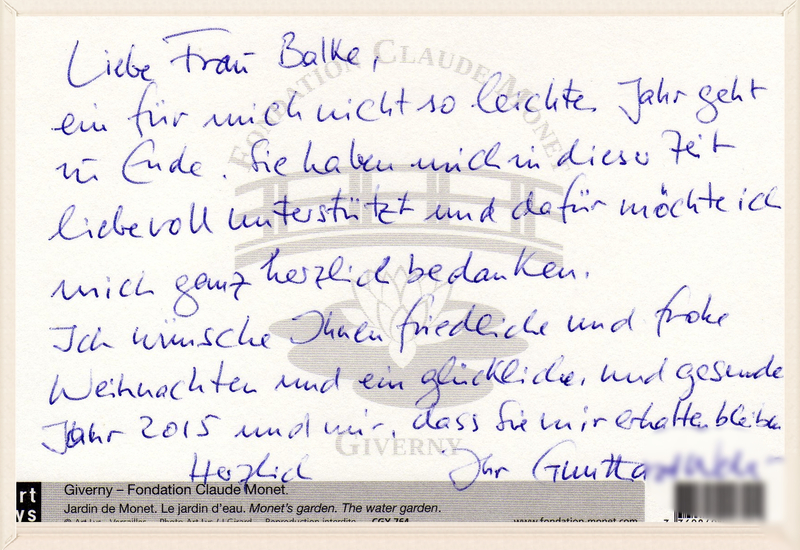 Liebe Frau Balke,
ein für mich nicht so leichtes Jahr geht
zu Ende. Sie haben mich in dieser Zeit
liebevoll unterstützt und dafür möchte ich
mich ganz herzlich bedanken.
Ich wünsche Ihnen friedliche und frohe
Weihnachten und ein glückliches und gesundes
Jahr 2015 und mir, dass Sie mir erhalten bleiben
Herzlich Ihr
FONDATION CLAUDE MONET
GIVERNY
rt
ys
Giverny – Fondation Claude Monet.
Jardin de Monet. Le jardin d'eau. Monet's garden. The water garden.
Reproduction interdite CGY 764 www.fondation-monet.com